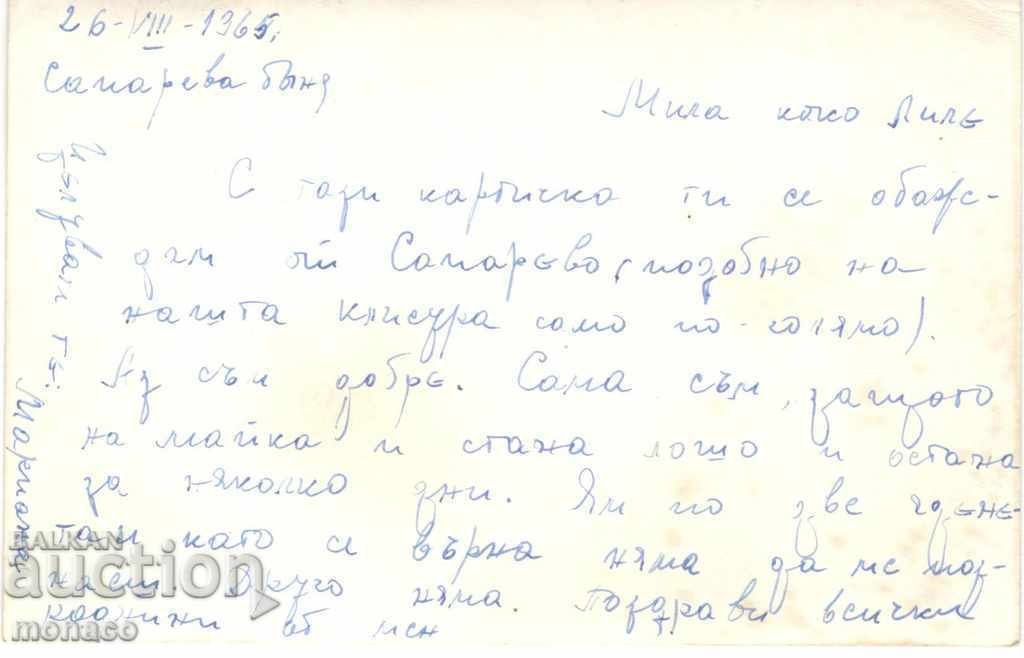 26-VIII-1965,
Сапарева баня
Мила како Лиле
С тази картичка ти се обаж-
дам от Сапарево (подобно на
нашта клисура само по-голямо).
Аз съм добре. Сама съм, защото
на майка и стана лошо и остана
за няколко дни. Ям по две ядене-
та и като се върна няма да ме поз-
наеш Друго няма. Поздрави всички
роднини от мен
Целувам те:
Мариана
BALKAN
auction
monaco